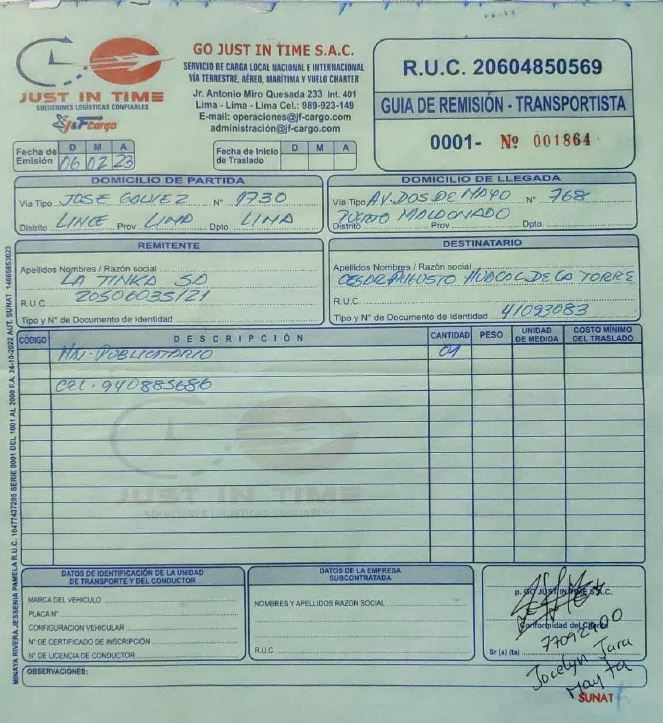 JUST IN TIME
SOLUCIONES LOGÍSTICAS CONFIABLES
J&F cargo
GO JUST IN TIME S.A.C.
SERVICIO DE CARGA LOCAL NACIONAL E INTERNACIONAL
VÍA TERRESTRE, AÉREO, MARÍTIMA Y VUELO CHARTER
Jr. Antonio Miro Quesada 233 Int. 401
Lima - Lima - Lima Cel.: 989-923-149
E-mail: operaciones@jf-cargo.com
administración@jf-cargo.com
R.U.C. 20604850569
GUIA DE REMISIÓN - TRANSPORTISTA
0001- Nº 001864
Fecha de Emisión D M A
06 02 23
Fecha de Inicio de Traslado D M A
DOMICILIO DE PARTIDA
Vía Tipo JOSE GALVEZ N° 1730
Distrito LINCE Prov LIMA Dpto LIMA
DOMICILIO DE LLEGADA
Vía Tipo AV. DOS DE MAYO N° 768
PUERTO MALDONADO
Distrito Prov Dpto.
REMITENTE
Apellidos Nombres / Razón social
LA TINKA SA
R.U.C. 20506035121
Tipo y N° de Documento de Identidad
DESTINATARIO
Apellidos Nombres / Razón social
CESAR AUGUSTO HUACAL DE LA TORRE
R.U.C.
Tipo y N° de Documento de Identidad 41093083
CÓDIGO DESCRIPCIÓN CANTIDAD PESO UNIDAD DE MEDIDA COSTO MÍNIMO DEL TRASLADO
01
CEL. 940885686
JUST IN TIME
SOLUCIONES LOGÍSTICAS CONFIABLES
DATOS DE IDENTIFICACIÓN DE LA UNIDAD DE TRANSPORTE Y DEL CONDUCTOR
MARCA DEL VEHICULO
PLACA N°
CONFIGURACION VEHICULAR
N° DE CERTIFICADO DE INSCRIPCIÓN
N° DE LICENCIA DE CONDUCTOR
DATOS DE LA EMPRESA SUBCONTRATADA
NOMBRES Y APELLIDOS RAZON SOCIAL
R.U.C
p. GO JUST IN TIME S.A.C.
Conformidad del Cliente
77092900
Sr (a) (ta)
Jocelyn Jara
Mayta
OBSERVACIONES:
SUNAT
MINAYA RIVERA JESSENIA PAMELA R.U.C. 10477437295 SERIE 0001 DEL 1001 AL 2000 F.A. 24-10-2022 AUT. SUNAT 14665853023